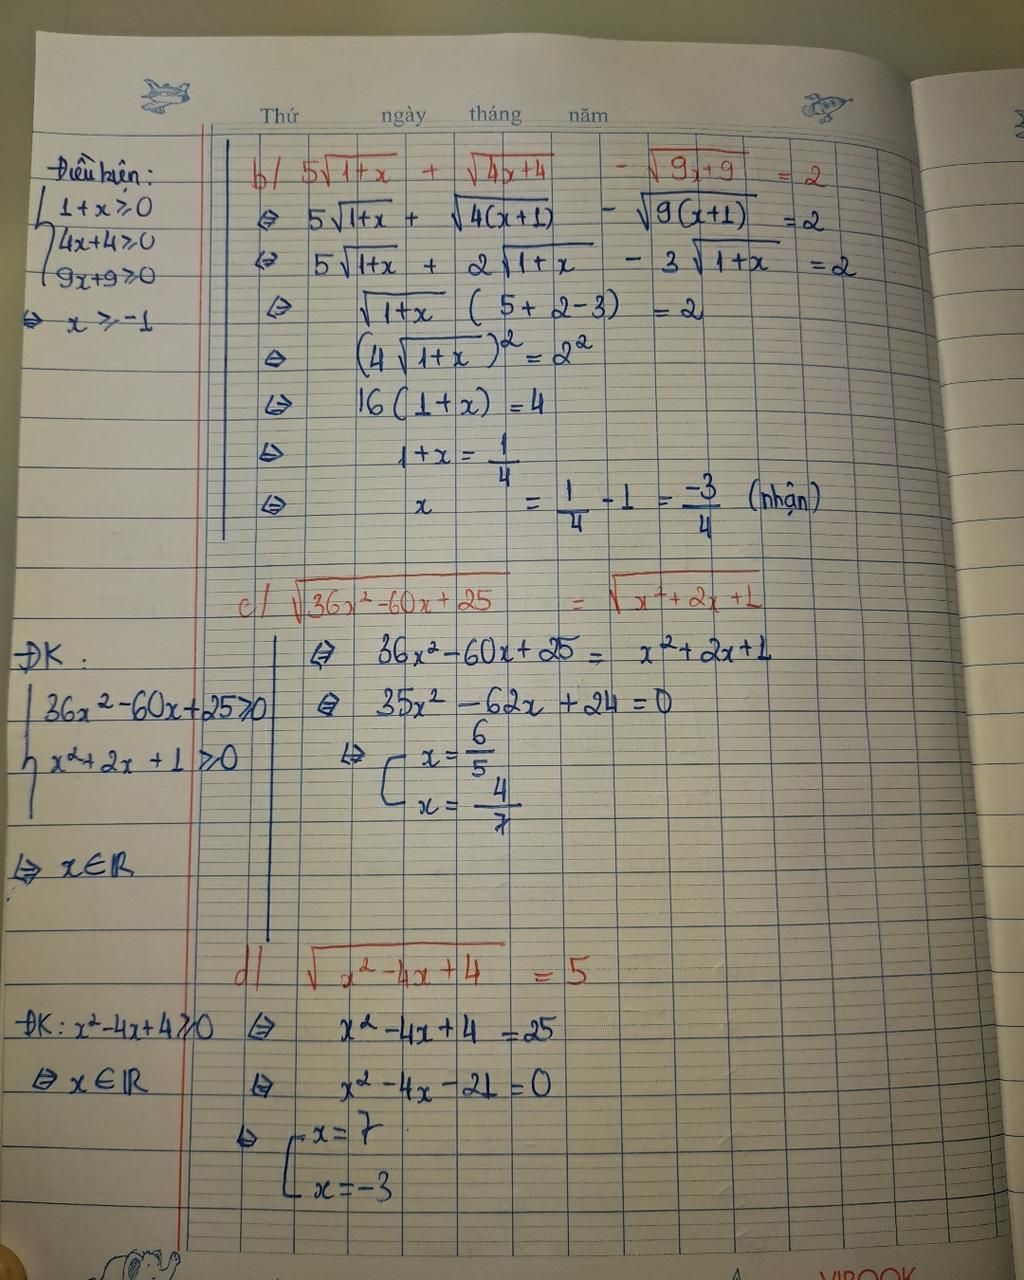 Thứ ngày tháng năm
Điều kiện:
1+x ≥ 0
4x+4 ≥ 0
9x+9 ≥ 0
⇔ x ≥ -1
b/ 5√(1+x) + √(4x+4) - √(9x+9) = 2
⇔ 5√(1+x) + √(4(x+1)) - √(9(x+1)) = 2
⇔ 5√(1+x) + 2√(1+x) - 3√(1+x) = 2
⇔ √(1+x) (5+2-3) = 2
⇔ (4√(1+x))² = 2²
⇔ 16(1+x) = 4
⇔ 1+x = 1/4
⇔ x = 1/4 - 1 = -3/4 (nhận)
c/ √(36x²-60x+25) = √(x²+2x+1)
ĐK:
36x²-60x+25 ≥ 0
x²+2x+1 ≥ 0
⇔ x∈ℝ
⇔ 36x²-60x+25 = x²+2x+1
⇔ 35x² -62x +24 = 0
⇔ x = 6/5
x = 4/7
d/ √(x²-4x+4) = 5
ĐK: x²-4x+4 ≥ 0
⇔ x∈ℝ
⇔ x²-4x+4 = 25
⇔ x²-4x-21 = 0
⇔ x = 7
x = -3
VIBOOK